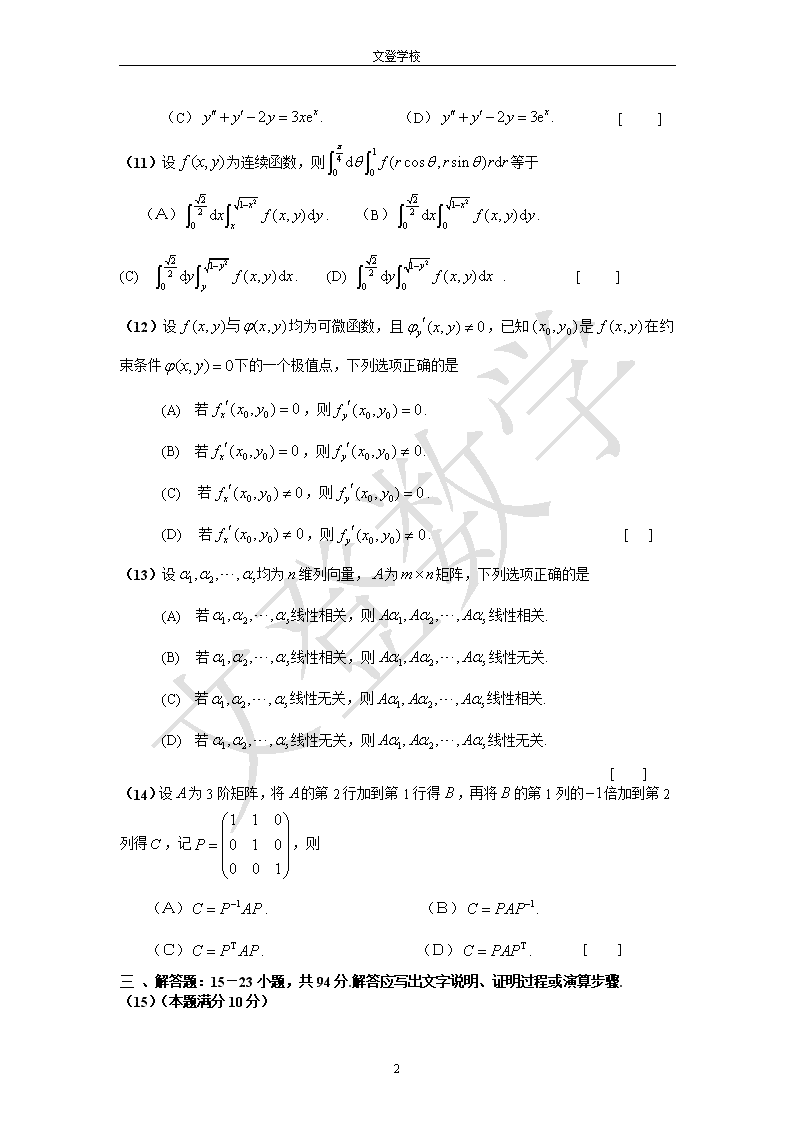 文登学校
（C） y″ + y′ − 2y = 3xeˣ. （D） y″ + y′ − 2y = 3eˣ. [ ]
（11）设 f(x, y) 为连续函数，则 ∫₀^{π/4} dθ ∫₀^1 f(r cos θ, r sin θ) r dr 等于
（A） ∫₀^{√2/2} dx ∫_x^{√(1−x²)} f(x, y) dy . （B） ∫₀^{√2/2} dx ∫₀^{√(1−x²)} f(x, y) dy .
(C) ∫₀^{√2/2} dy ∫_y^{√(1−y²)} f(x, y) dx . (D) ∫₀^{√2/2} dy ∫₀^{√(1−y²)} f(x, y) dx . [ ]
（12）设 f(x, y) 与 φ(x, y) 均为可微函数，且 φ_y′(x, y) ≠ 0，已知 (x₀, y₀) 是 f(x, y) 在约
束条件 φ(x, y) = 0 下的一个极值点，下列选项正确的是
(A) 若 f_x′(x₀, y₀) = 0，则 f_y′(x₀, y₀) = 0.
(B) 若 f_x′(x₀, y₀) = 0，则 f_y′(x₀, y₀) ≠ 0.
(C) 若 f_x′(x₀, y₀) ≠ 0，则 f_y′(x₀, y₀) = 0.
(D) 若 f_x′(x₀, y₀) ≠ 0，则 f_y′(x₀, y₀) ≠ 0. [ ]
（13）设 α₁, α₂, ⋯, αₛ 均为 n 维列向量， A 为 m × n 矩阵，下列选项正确的是
(A) 若 α₁, α₂, ⋯, αₛ 线性相关，则 Aα₁, Aα₂, ⋯, Aαₛ 线性相关.
(B) 若 α₁, α₂, ⋯, αₛ 线性相关，则 Aα₁, Aα₂, ⋯, Aαₛ 线性无关.
(C) 若 α₁, α₂, ⋯, αₛ 线性无关，则 Aα₁, Aα₂, ⋯, Aαₛ 线性相关.
(D) 若 α₁, α₂, ⋯, αₛ 线性无关，则 Aα₁, Aα₂, ⋯, Aαₛ 线性无关.
[ ]
（14）设 A 为 3 阶矩阵，将 A 的第 2 行加到第 1 行得 B，再将 B 的第 1 列的 −1 倍加到第 2
1 1 0
列得 C，记 P = 0 1 0 ，则
0 0 1
（A） C = P⁻¹AP . （B） C = PAP⁻¹.
（C） C = PᵀAP . （D） C = PAPᵀ . [ ]
三 、解答题：15－23 小题，共 94 分.解答应写出文字说明、证明过程或演算步骤.
（15）（本题满分 10 分）
2
文登数学